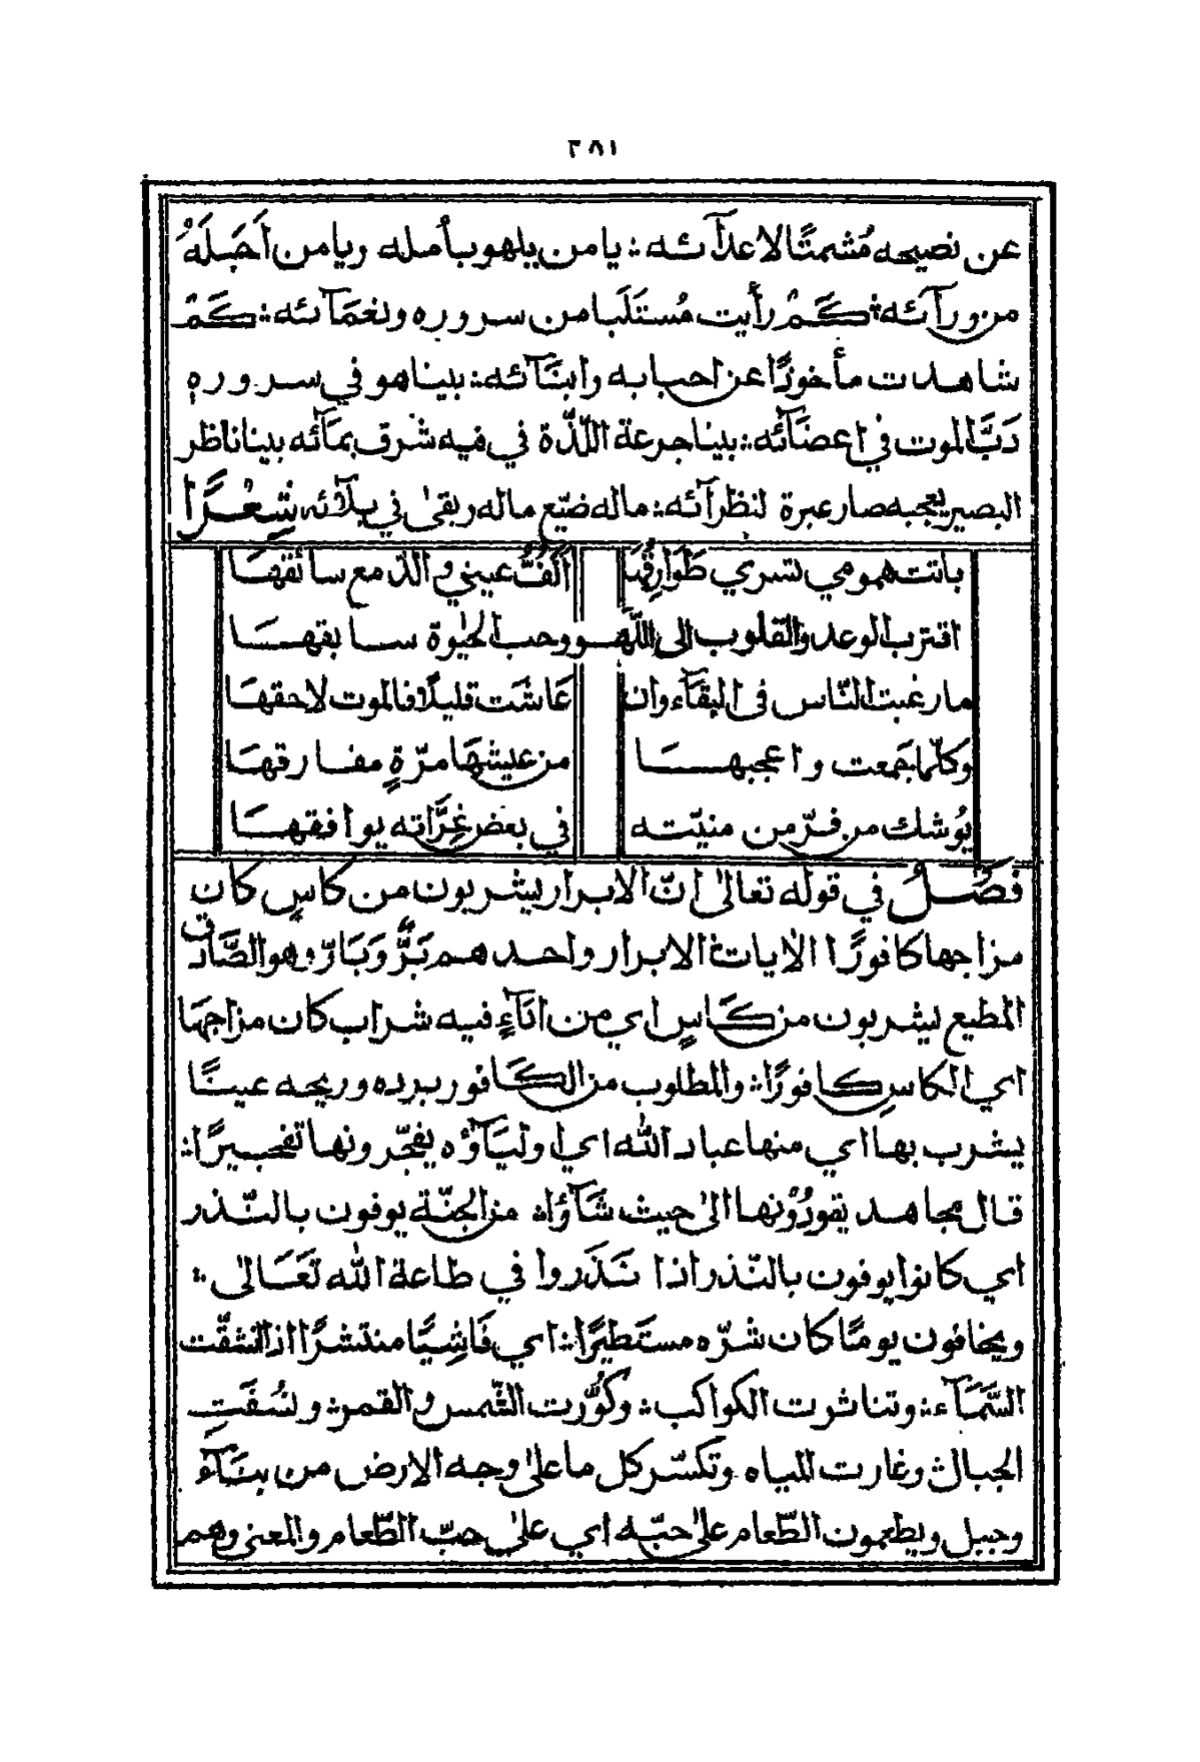 ٣٨١
عن نصيحه مُشمتًا لاعدآئه ؞ يا من يلهو بأمله ويا من اَجَلَهُ
من ورآئه ؞ كَمْ رأيت مُستَلَبا من سروره ونغمَآئه ؞ كَمْ
شاهدت مأخوذًا عن احبابه وابنَآئه ؞ بينا هو في سروره
دَبَّ الموت في اعضَآئه ؞ بينا جرعة اللّذّة في فيه شَرق بمَآئه بينا ناظر
البصير يعجبه صار عبرة لنظرآئه ؞ ماله ضيّع ماله وبقىٰ في بلآئه شِعْرًا
باتت همومي تسري طَوَارِقُهَا اَلفُتُ عيني والدّمع سائقهَا
اقترب الوعد والقلوب الى اللّهو وحب الحيٰوة سابقهَا
ما رغبت النّاس فى البقآء وان عَاشَت قليلًا فالموت لاحقهَا
وكلّما جمعت واعجبهَا من عيشهَا مرّةٍ مفارقهَا
يُوشك من فرّ من منيّته في بعض غِرَّاته يوافقهَا
فَصْلُ في قوله تعالىٰ انّ الابرار يشربون من كاسٍ كان
مزاجها كافورًا الاٰيات ؞ الابرار واحدهم بَرٌّ وَبَارّ وهو الصَّادق
المطيع يشربون من كَاسٍ اي من انَآءٍ فيه شراب كان مزاجهَا
اي الكاسِ كافورًا ؞ والمطلوب من الكَافور برده وريحه عينًا
يشرب بها اي منها عباد اللّه اي اوليَآؤه يفجّرونها تفجيرًا ؞
قال مجاهد يقودُوْنها الىٰ حيث شَآؤا ؞ من الجنّة يوفون بالنّذر
اي كانوا يوفون بالنّذر اذا نَذَروا في طاعة اللّه تَعَالىٰ ؞
ويخافون يومًا كان شرّه مستَطيرًا ؞ اي فَاشِيًا منتشرًا اذ انشقّت
السَّمَآء ؞ وتناثرت الكواكب ؞ وكُوِّرت الشّمس والقمر ؞ ونُسُفَتِ
الجبال ؞ وغارت المياه وتكسّر كل ما علىٰ وجه الارض من بنَآء
وجبل ويطعمون الطّعام علىٰ حبّه اي علىٰ حبّ الطّعام والمعنى وهم